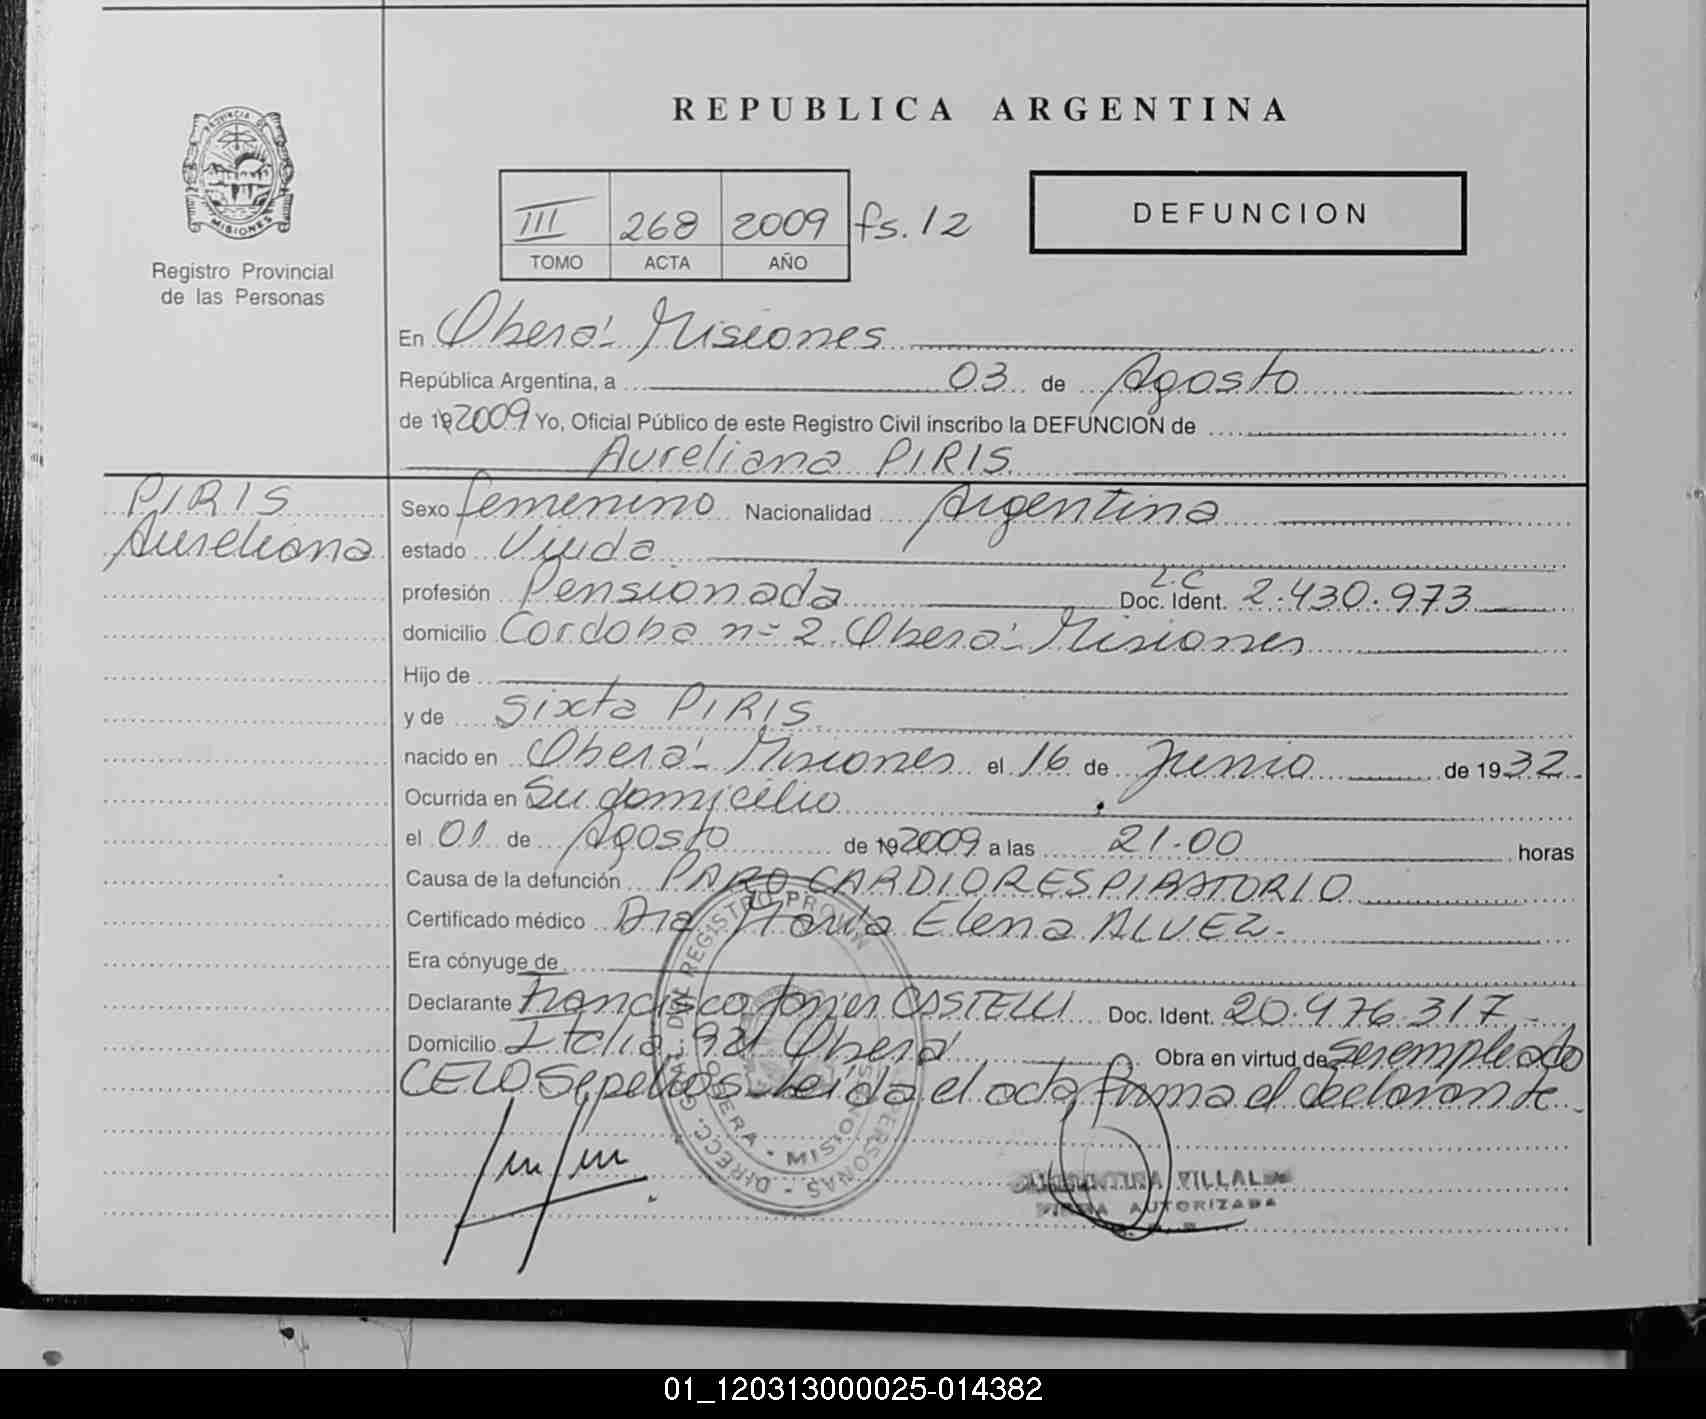 REPUBLICA ARGENTINA
PROVINCIA DE
MISIONES
Registro Provincial
de las Personas
III 268 2009 fs. 12
TOMO ACTA AÑO
DEFUNCION
En Oberá - Misiones
República Argentina, a 03 de Agosto
de 19 2009 Yo, Oficial Público de este Registro Civil inscribo la DEFUNCION de
Aureliana PIRIS
PIRIS
Aureliana
Sexo femenino Nacionalidad Argentina
estado Viuda
profesión Pensionada Doc. Ident. L.C 2.430.973
domicilio Cordoba nº 2 Oberá - Misiones
Hijo de
y de Sixta PIRIS
nacido en Oberá - Misiones el 16 de Junio de 1932.
Ocurrida en Su domicilio
el 01 de Agosto de 19 2009 a las 21.00 horas
Causa de la defunción PARO CARDIORESPIRATORIO
Certificado médico Dra María Elena ALVEZ.
Era cónyuge de
Declarante Francisco Javier CASTELLI Doc. Ident. 20.476.317
Domicilio Italia 921 Oberá Obra en virtud de ser empleado
CELO Sepelios. Leída el acta firma el declarante.
DIRECC. GRAL. DEL REGISTRO PROVIN PERSONAS
OBERA - MISIONES
VILLAL
FIRMA AUTORIZADA
01_120313000025-014382